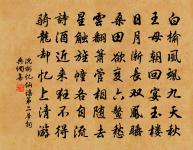 白榆風颯九天秋
王母朝回宴玉樓
日月漸長雙鳳睡
桑田欲變六鰲愁
雲翻簫管相隨去
星觸旌幢各自流
詩酒近來狂不得
騎龍却憶上清游
沈彬憶仙謠第二首